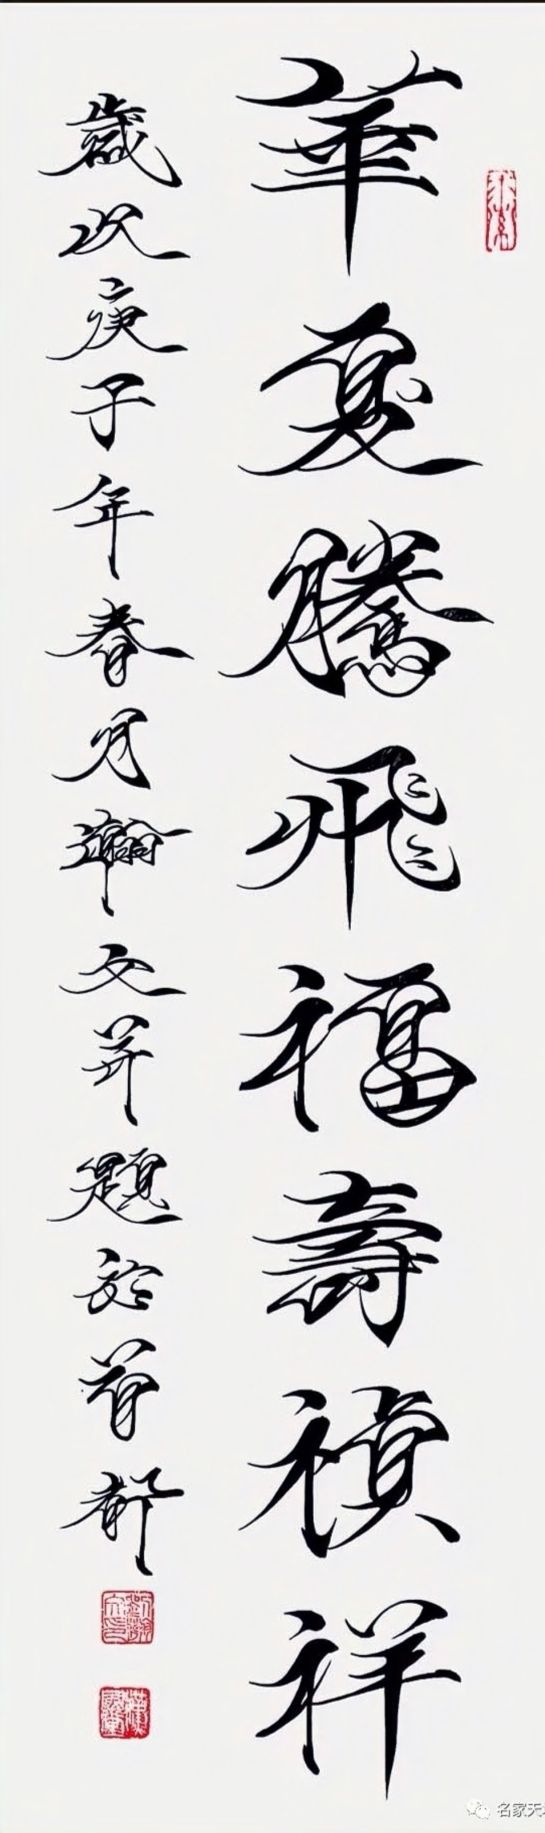 華夏騰飛福壽禎祥
歲次庚子年春月瀚文並題於首都
名家天